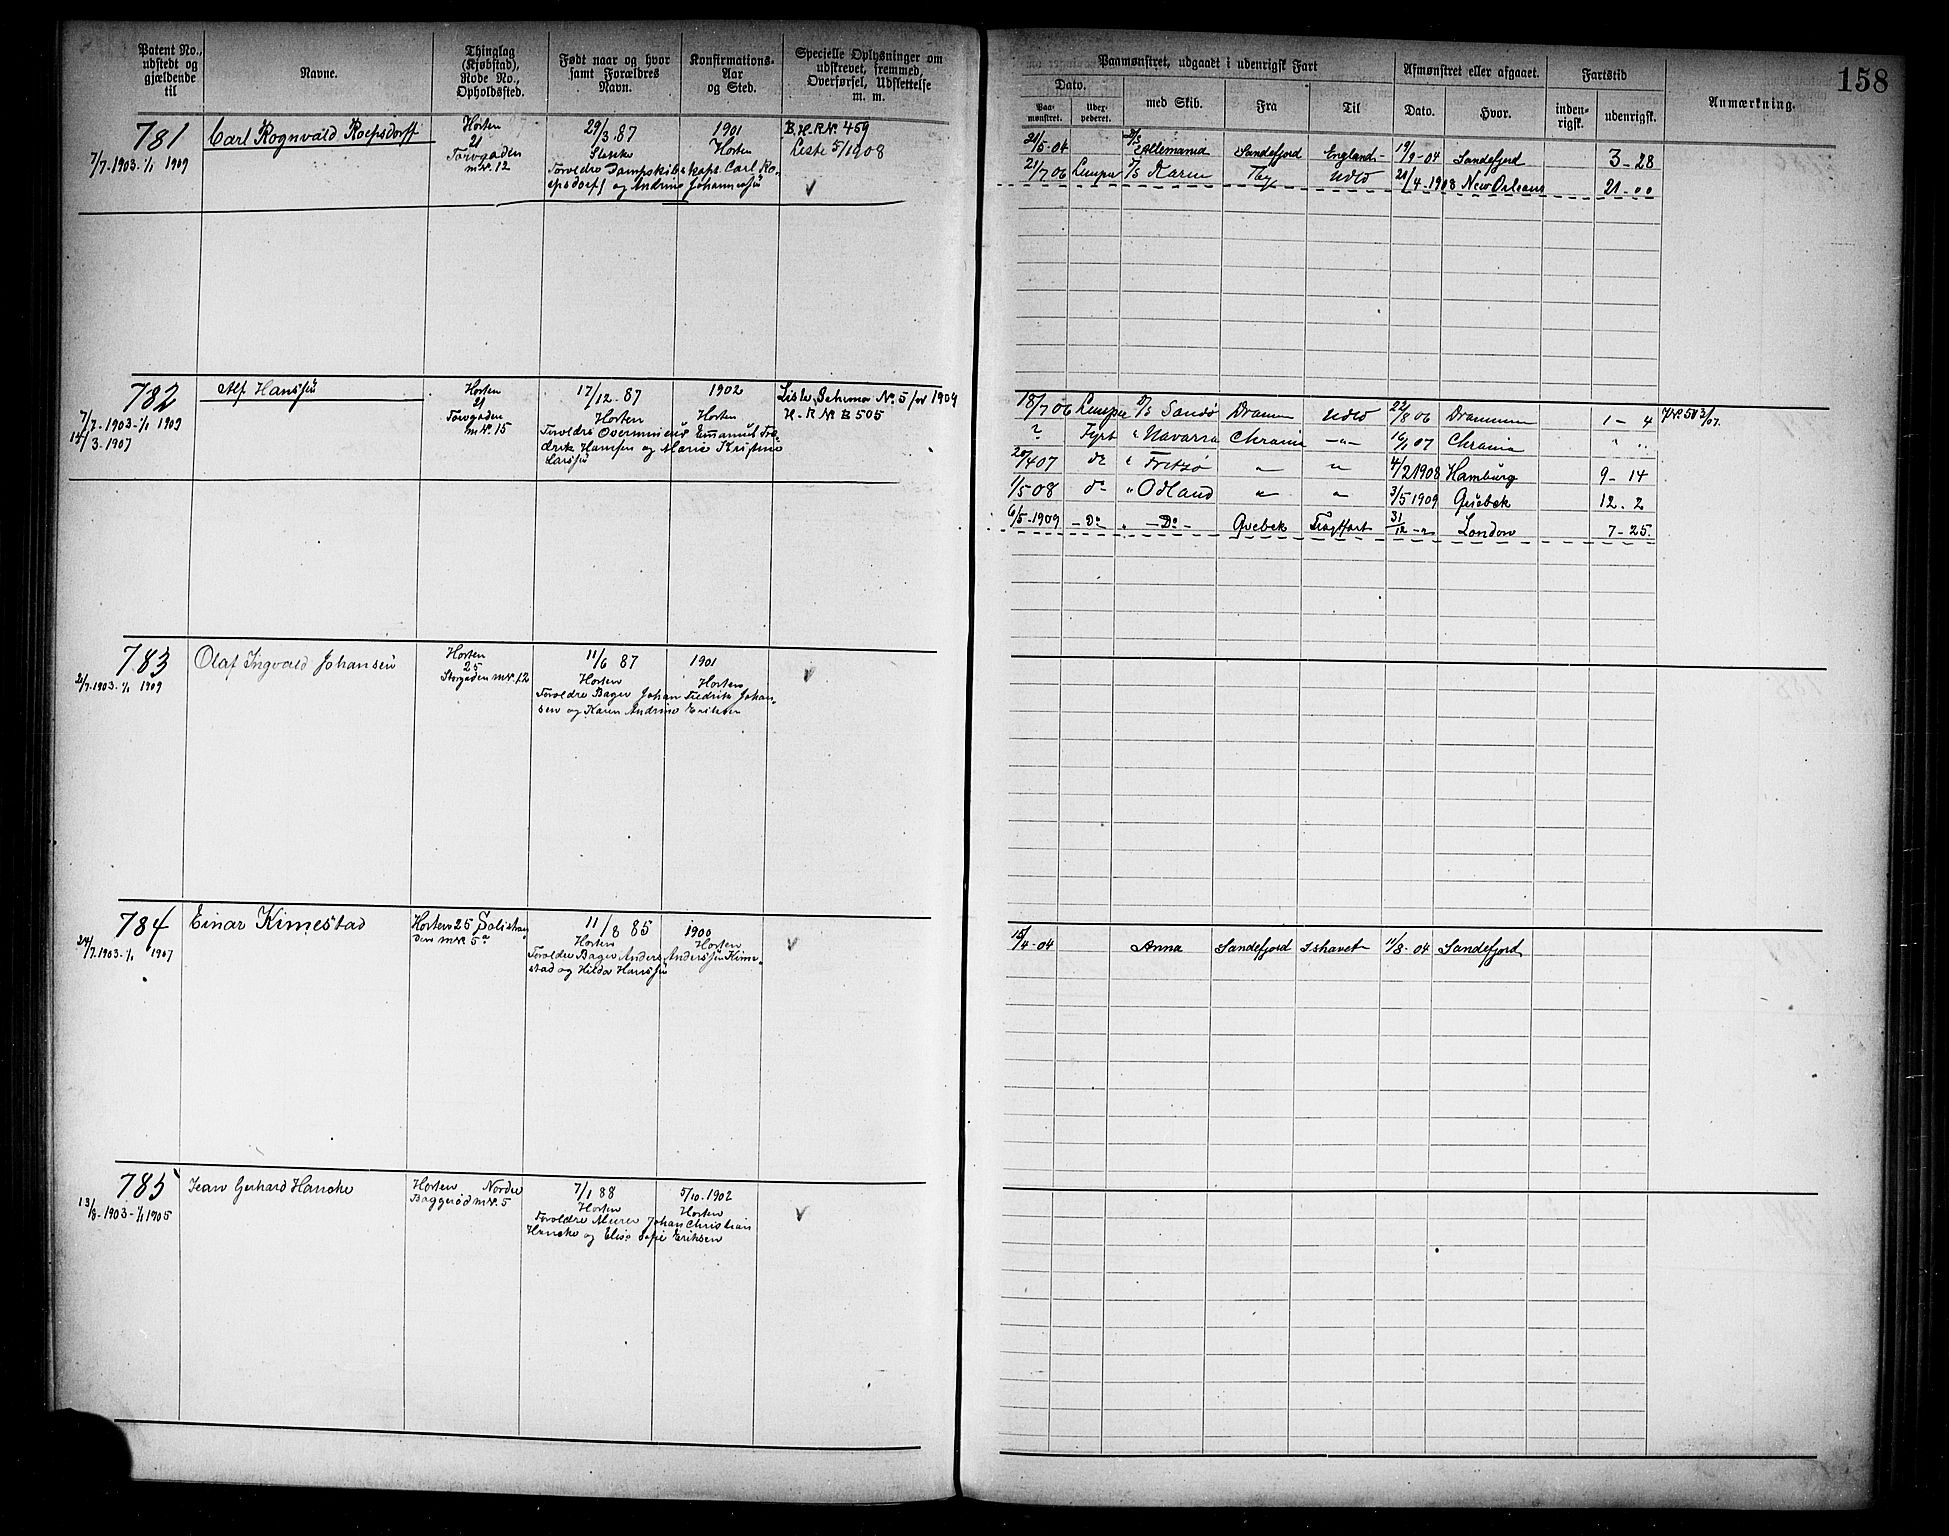 158
Patent No., udstedt og gjældende til
Navne.
Thinglag (Kjøbstad), Rode No., Opholdssted.
Født naar og hvor samt Forældres Navn.
Konfirmations-Aar og Sted.
Specielle Oplysninger om udskrevet, fremmed, Overførsel, Udslettelse m. m.
Paamønstret, udgaaet i udenrigsk Fart
Afmønstret eller afgaaet.
Fartstid
Anmærkning.
Dato.
med Skib.
Fra
Til
Dato.
Hvor.
inden-rigsk.
udenrigsk.
Paa-mønstret.
781
Carl Rognvald Roepsdorff
7/7-1903-1/1 1909
Horten
21
Torvgaden
m№.12
29/3.87
1901
Horten
Forældre Dampskibskapt. Carl Ro-
epsdorff og Andrine Johannessen
B. H.R№. 459
Liste 5/1908
21/5-04
Allemania
Sandefjord
England-
19/9-04
Sandefjord
3-28
21/7 06
Karin
Udld
21/4-1908
New Orleans
21-"
782
Alf Hanssen
7/7-1903-1/1 1909
14/3.1907
Horten
21
Torvgaden
m№.15
17/12.87
Horten
1902
Horten
Forældre Overminør Emanuel Fre-
drik Hansen og Marie Kristine
Larssen
Liste Schema No. 5 for 1909
H-R№ B 505
18/7 06
D/S Sandø
Dramen
Udld
22/8 06
Drammen
1-4
?
Fyrb
" Navarra
Chrania
-"-
16/1 07
Chrania
" "
20/4 07
do
" Fritzø
"
"
4/2 1908
Hamburg
9-14
1/5 08
do
" Odland
"
"
3/5 1909
Quebek
12.2
6/5-1909
-Do-
"
-Do-
Qvebek
Fragtfart
31/12 -"-
London
7-25.
783
Olaf Ingvald Johansen
21/7.1903-1/1 1909
Horten
25
Storgaden m№.12
11/6 87
Horten
1901
Horten
Forældre Bager Johan Fredrik Johan-
sen og Karen Andrine Eriksen
784
Einar Kimestad
24/7.1903-1/1 1907
Horten 25
m№ 5a
11/8 85
Horten
1900
Horten
Forældre Bager Anders Anderssen Kime-
stad og Hilda Hanssen
15/4-04
Anna
Sandefjord
Ishavet
11/8-04
Sandefjord
785
Jean Gerhard Hancke
13/8-1903-1/1 1905
Horten Nordre
Baggerød m№.5
7/1 88
Horten
5/10.1902
Horten
Forældre Murer Johan Christian
Hancke og Elise Sofie Eriksen